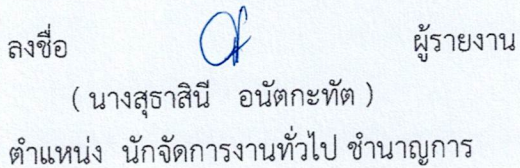 ลงชื่อ ผู้รายงาน
( นางสุธาสินี อนัตกะทัต )
ตำแหน่ง นักจัดการงานทั่วไป ชำนาญการ